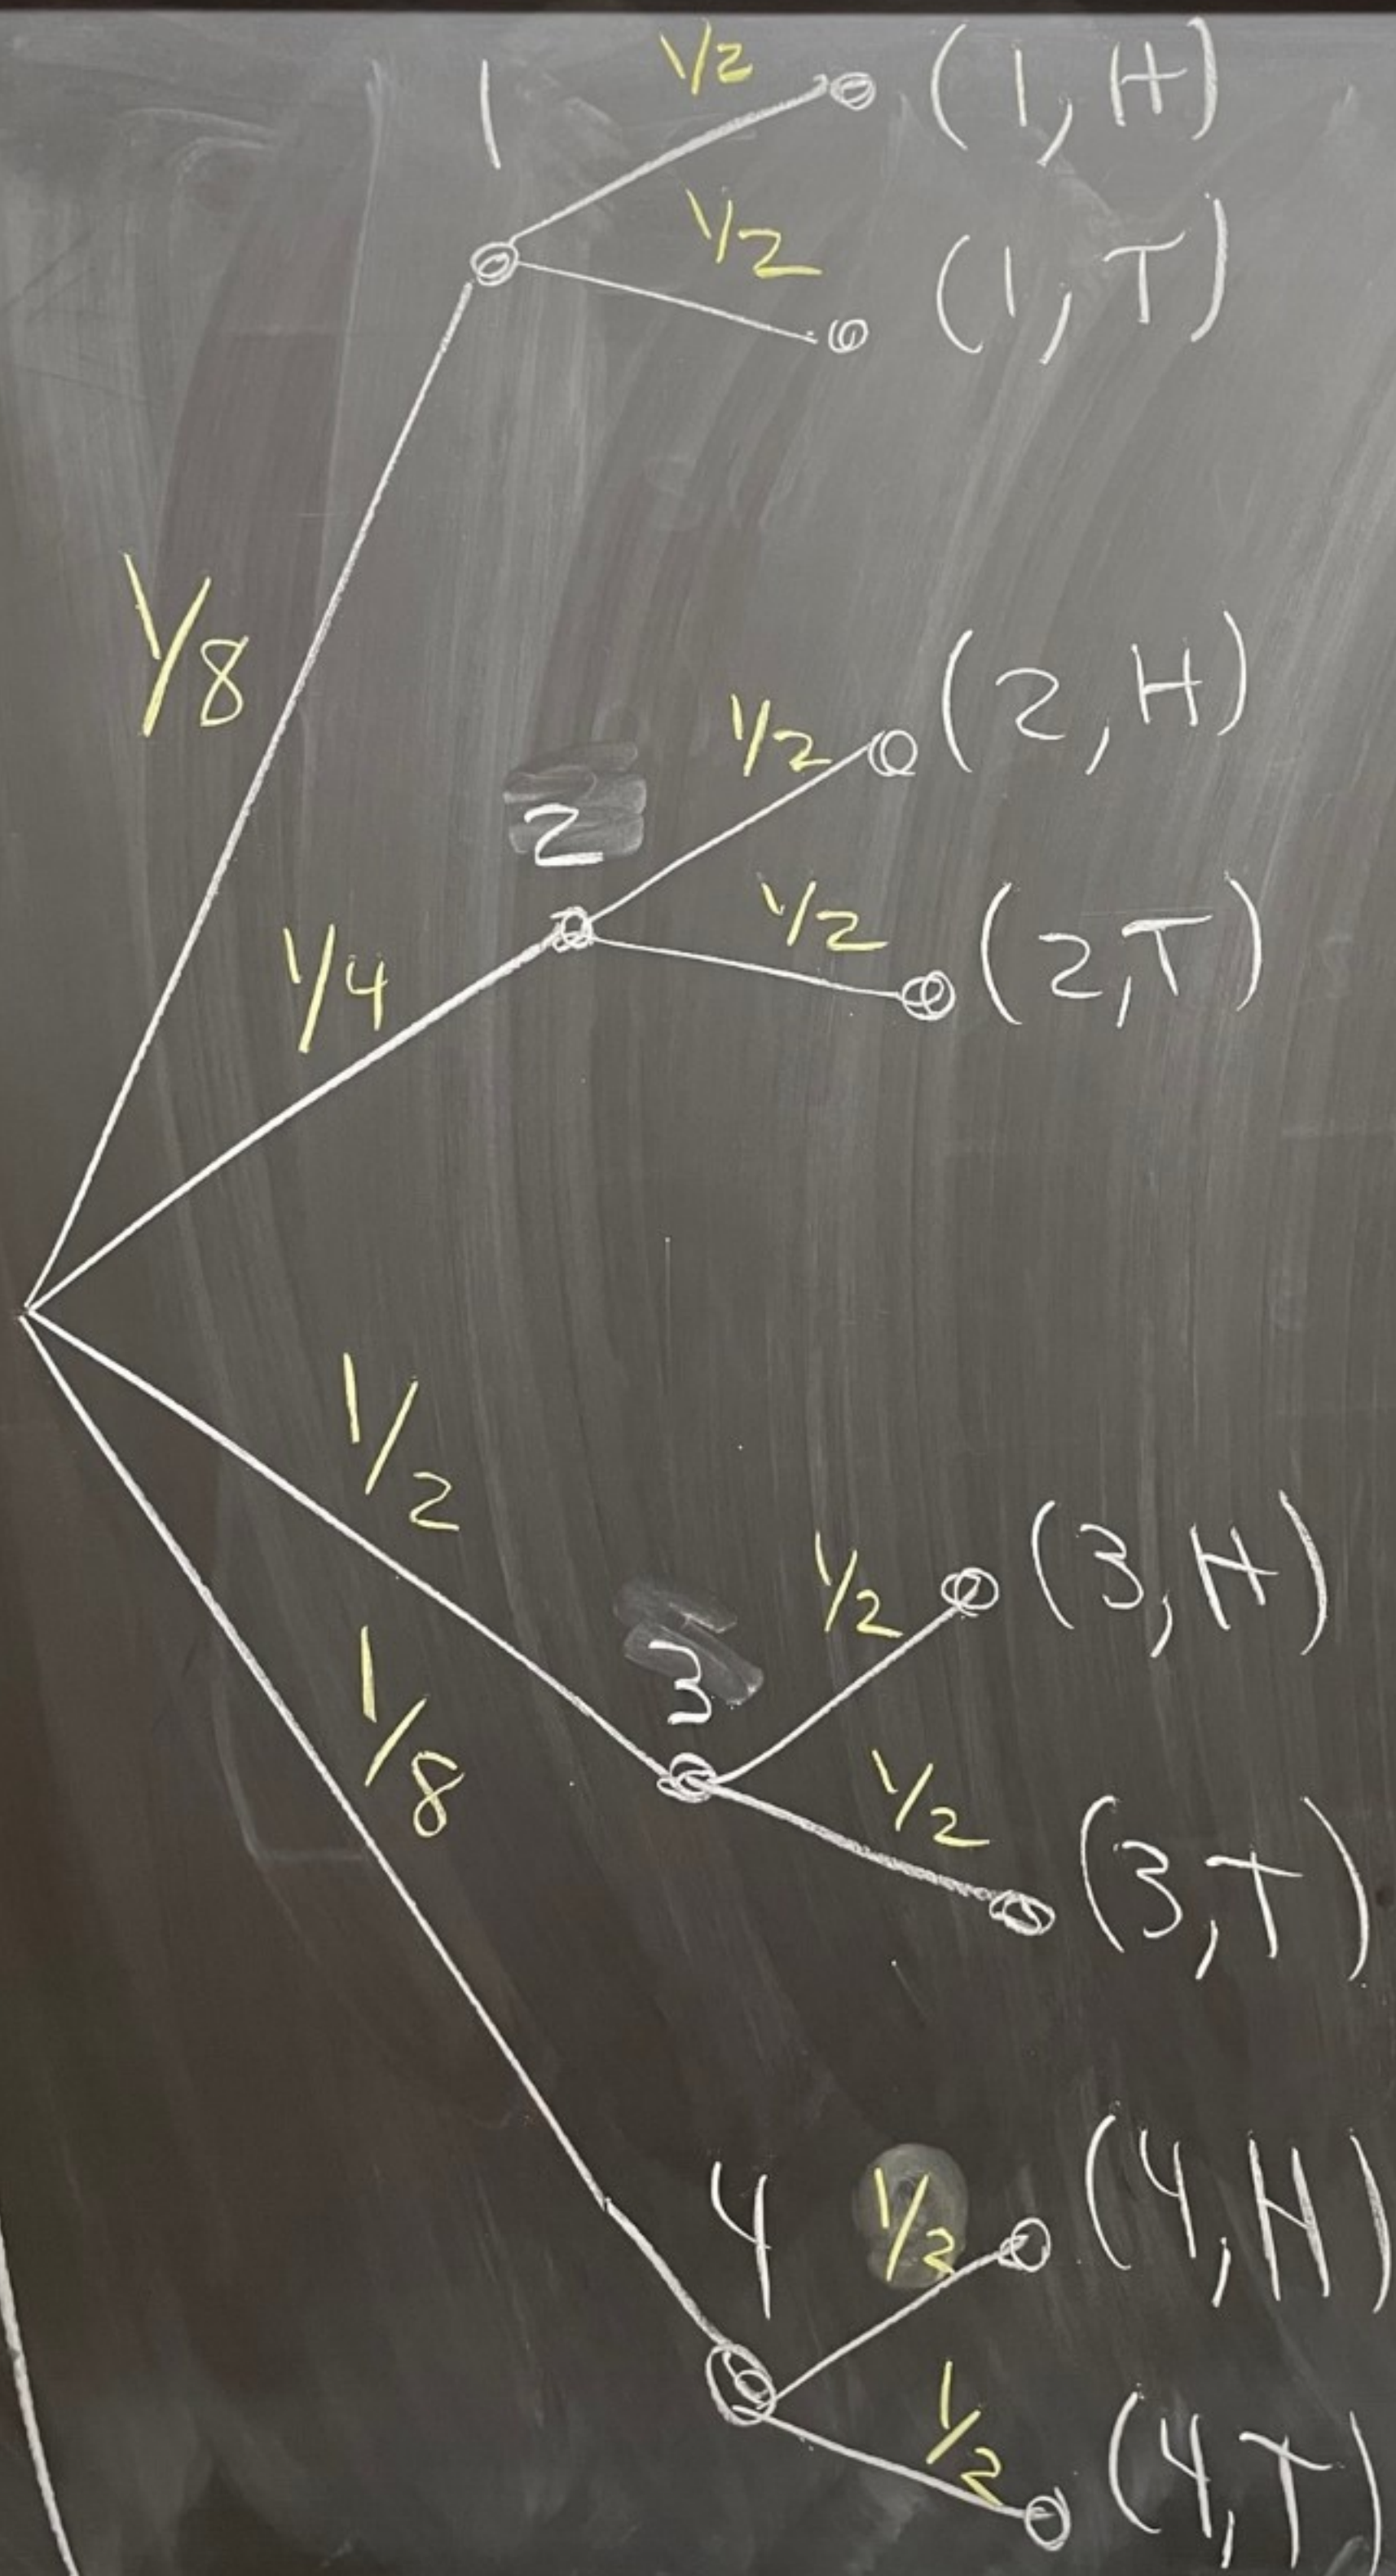 1
1/2
(1,H)
1/2
(1,T)
1/8
2
1/2
(2,H)
1/2
(2,T)
1/4
1/2
3
1/2
(3,H)
1/2
(3,T)
1/8
4
1/2
(4,H)
1/2
(4,T)